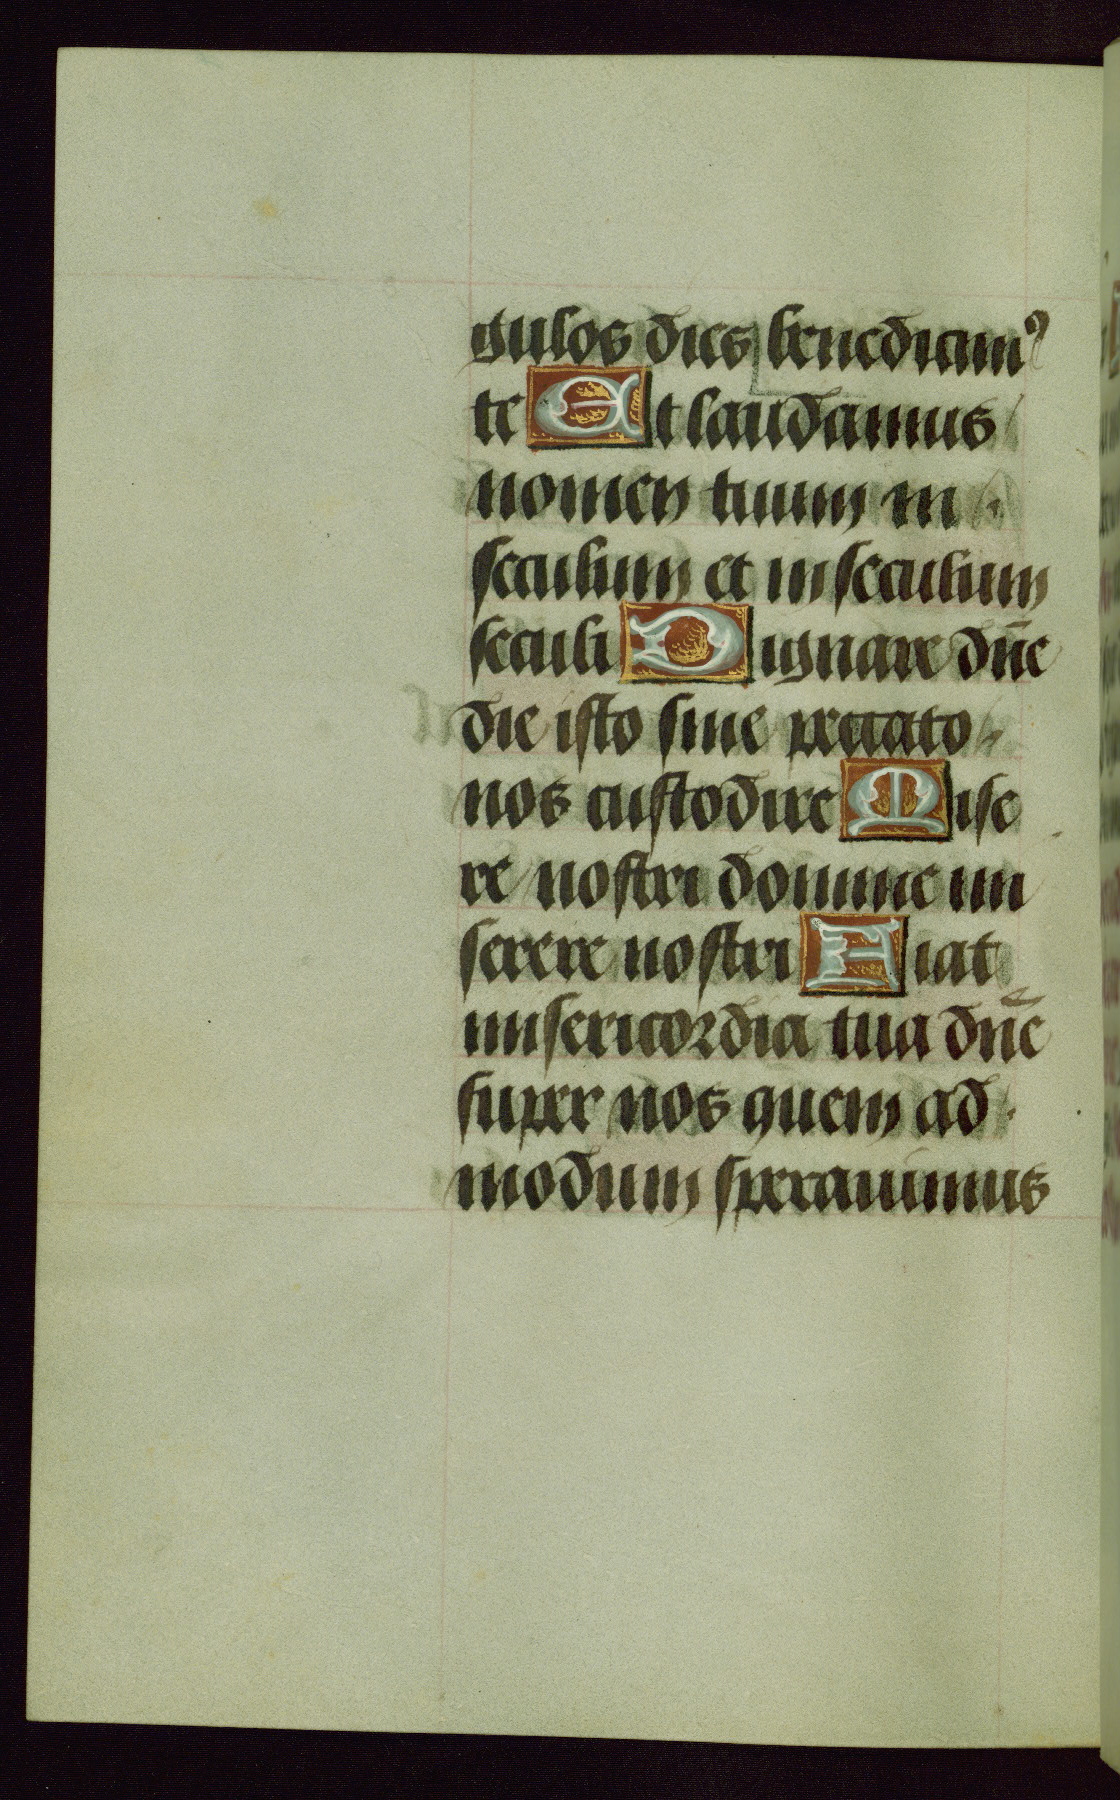 gulos dies benedicimꝰ
te Et laudamus
nomen tuum in
seculum et in seculum
seculi Dignare dn̄e
die isto sine peccato
nos custodire Mise
re nostri domine mi
serere nostri Fiat
misericordia tua dn̄e
super nos quem ad
modum sperauimus